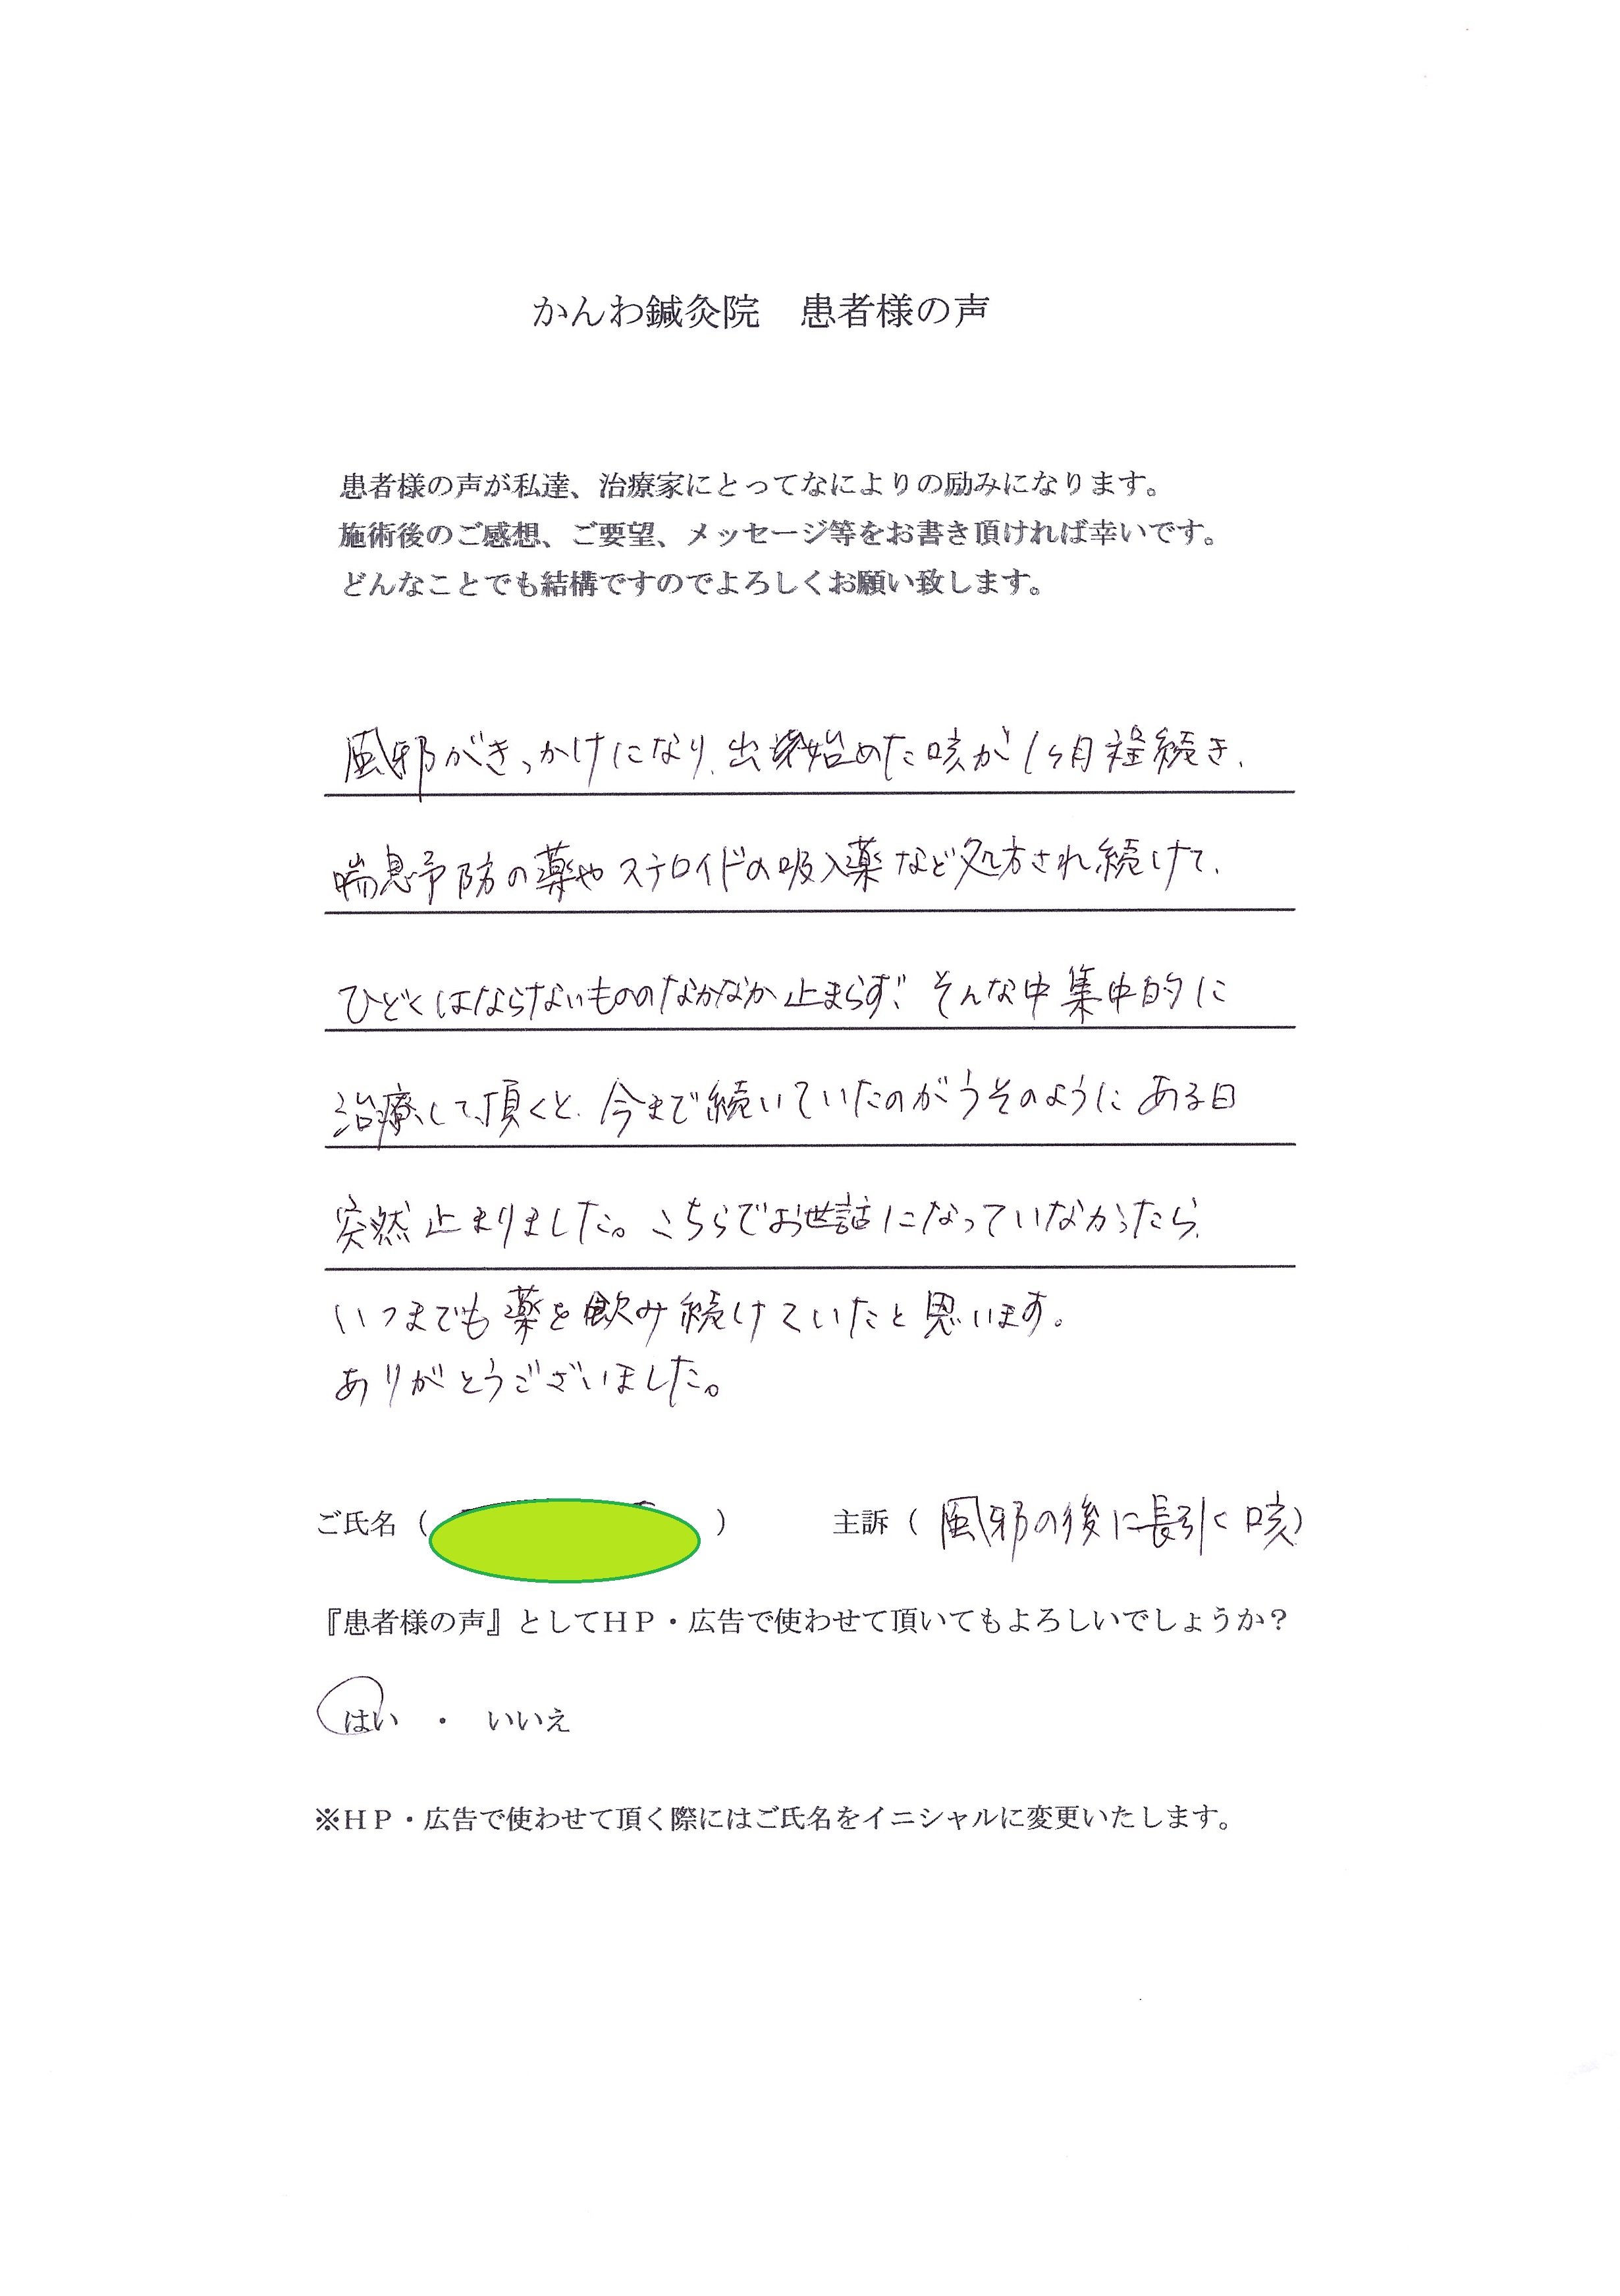 かんわ鍼灸院　患者様の声
患者様の声が私達、治療家にとってなによりの励みになります。
施術後のご感想、ご要望、メッセージ等をお書き頂ければ幸いです。
どんなことでも結構ですのでよろしくお願い致します。
風邪がきっかけになり、出始めた咳が1ヶ月程続き、
喘息予防の薬やステロイドの吸入薬など処方され続けて、
ひどくはならないもののなかなか止まらず、そんな中集中的に
治療して頂くと、今まで続いていたのがうそのようにある日
突然止まりました。こちらでお世話になっていなかったら、
いつまでも薬を飲み続けていたと思います。
ありがとうございました。
ご氏名（　　　）　主訴（風邪の後に長引く咳）
『患者様の声』としてＨＰ・広告で使わせて頂いてもよろしいでしょうか？
はい　・　いいえ
※ＨＰ・広告で使わせて頂く際にはご氏名をイニシャルに変更いたします。